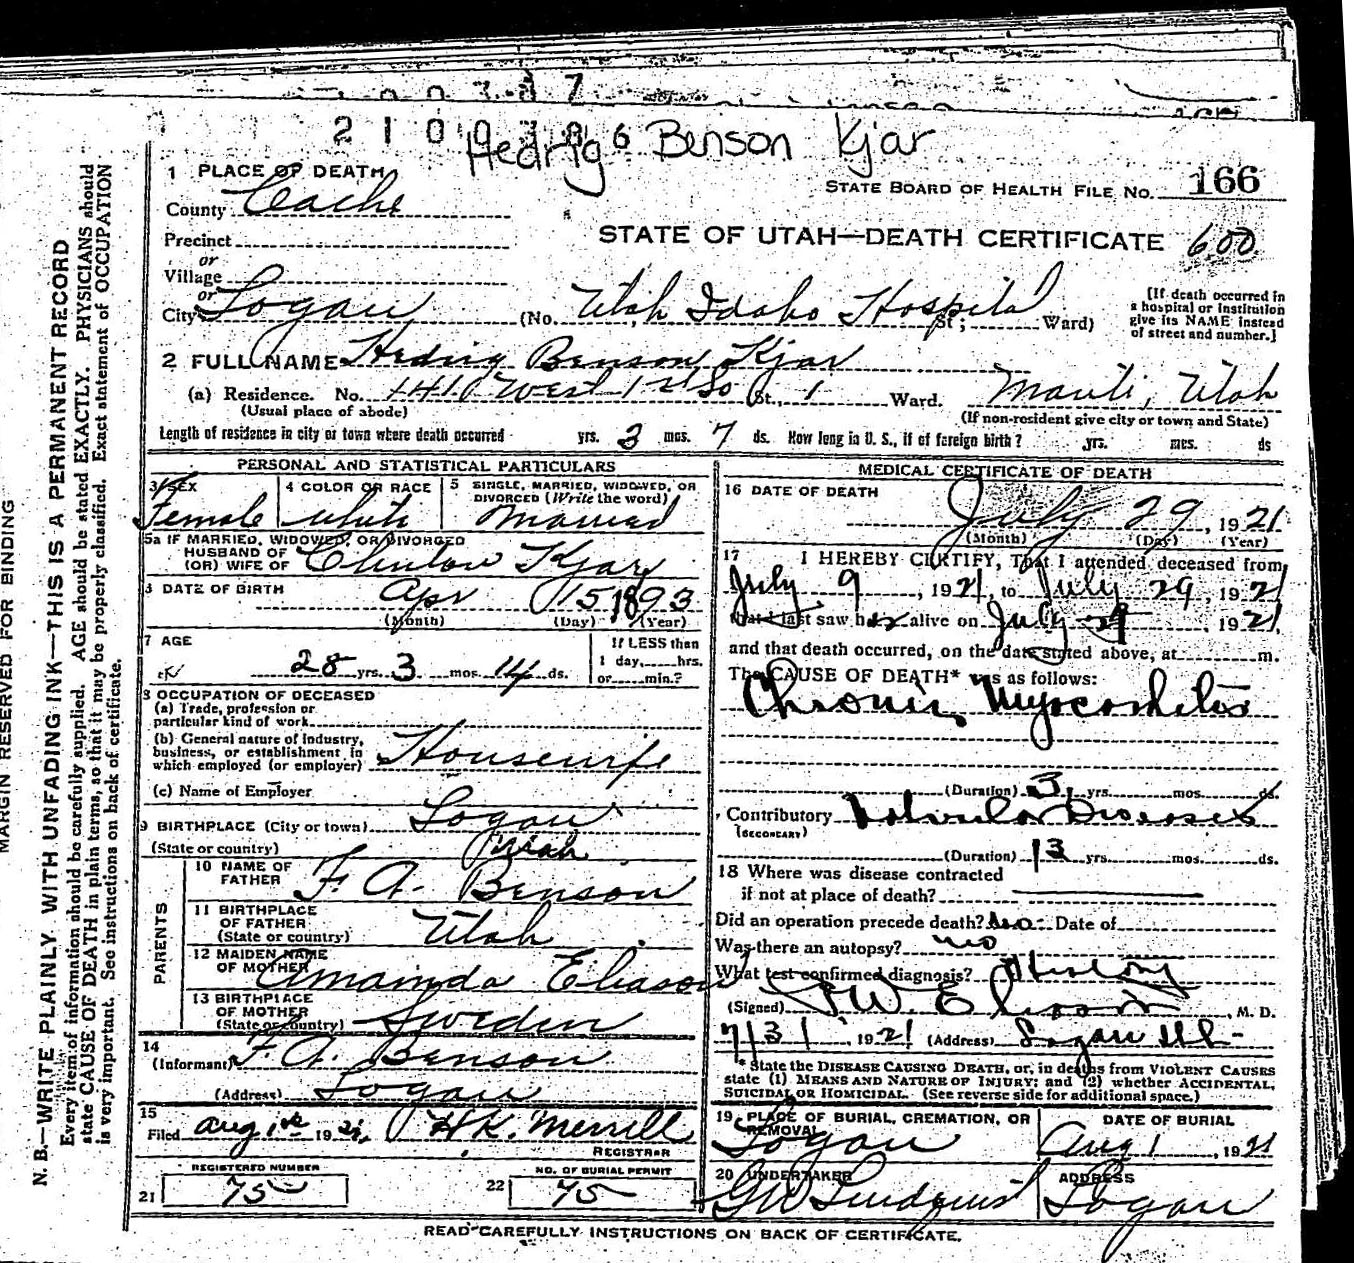 2100386
Hedrig Benson Kjar
1 PLACE OF DEATH
County Cache
STATE BOARD OF HEALTH FILE NO. 166
Precinct
STATE OF UTAH—DEATH CERTIFICATE 600
or
Village
or
City Logan (No. Utah Idaho Hospital St.; Ward)
[If death occurred in a hospital or institution give its NAME instead of street and number.]
2 FULL NAME Hedrig Benson Kjar
(a) Residence. No. 141 West 1st So St., 1 Ward. Manti, Utah
(Usual place of abode) (If non-resident give city or town and State)
Length of residence in city or town where death occurred yrs. 3 mos. 7 ds. How long in U. S., if of foreign birth? yrs. mos. ds
PERSONAL AND STATISTICAL PARTICULARS
3 SEX
Female
4 COLOR OR RACE
white
5 SINGLE, MARRIED, WIDOWED, OR DIVORCED (Write the word)
Married
5a IF MARRIED, WIDOWED, OR DIVORCED
HUSBAND OF
(OR) WIFE OF Clinton Kjar
6 DATE OF BIRTH
Apr 15 1893
(Month) (Day) (Year)
7 AGE
28 yrs. 3 mos. 14 ds.
If LESS than
1 day, hrs.
or min.?
8 OCCUPATION OF DECEASED
(a) Trade, profession or
particular kind of work
(b) General nature of industry,
business, or establishment in
which employed (or employer) Housewife
(c) Name of Employer
9 BIRTHPLACE (City or town) Logan
(State or country) Utah
PARENTS
10 NAME OF
FATHER F. A. Benson
11 BIRTHPLACE
OF FATHER
(State or country) Utah
12 MAIDEN NAME
OF MOTHER Amainda Eliason
13 BIRTHPLACE
OF MOTHER
(State or country) Sweden
14
(Informant) F. A. Benson
(Address) Logan
15
Filed Aug 1st 1921, H.K. Merrill
REGISTRAR
REGISTERED NUMBER
21 75
NO. OF BURIAL PERMIT
22 75
MEDICAL CERTIFICATE OF DEATH
16 DATE OF DEATH
July 29, 1921
(Month) (Day) (Year)
17 I HEREBY CERTIFY, That I attended deceased from
July 9, 1921, to July 29, 1921
that I last saw her alive on July 29 1921,
and that death occurred, on the date stated above, at m.
The CAUSE OF DEATH* was as follows:
Chronic Myocarditis
(Duration) 3 yrs. mos. ds.
Contributory Valvular Disease
(SECONDARY)
(Duration) 13 yrs. mos. ds.
18 Where was disease contracted
if not at place of death?
Did an operation precede death? no Date of
Was there an autopsy? no
What test confirmed diagnosis? History
(Signed) , M. D.
7/31, 1921 (Address) Logan Ut-
*State the DISEASE CAUSING DEATH, or, in deaths from VIOLENT CAUSES
state (1) MEANS AND NATURE OF INJURY; and (2) whether ACCIDENTAL,
SUICIDAL OR HOMICIDAL. (See reverse side for additional space.)
19 PLACE OF BURIAL, CREMATION, OR REMOVAL
Logan
DATE OF BURIAL
Aug 1, 1921
20 UNDERTAKER
GW Lindquist
ADDRESS
Logan
READ CAREFULLY INSTRUCTIONS ON BACK OF CERTIFICATE.
MARGIN RESERVED FOR BINDING
N. B.—WRITE PLAINLY WITH UNFADING INK—THIS IS A PERMANENT RECORD
Every item of information should be carefully supplied. AGE should be stated EXACTLY. PHYSICIANS should
state CAUSE OF DEATH in plain terms, so that it may be properly classified. Exact statement of OCCUPATION
is very important. See instructions on back of certificate.